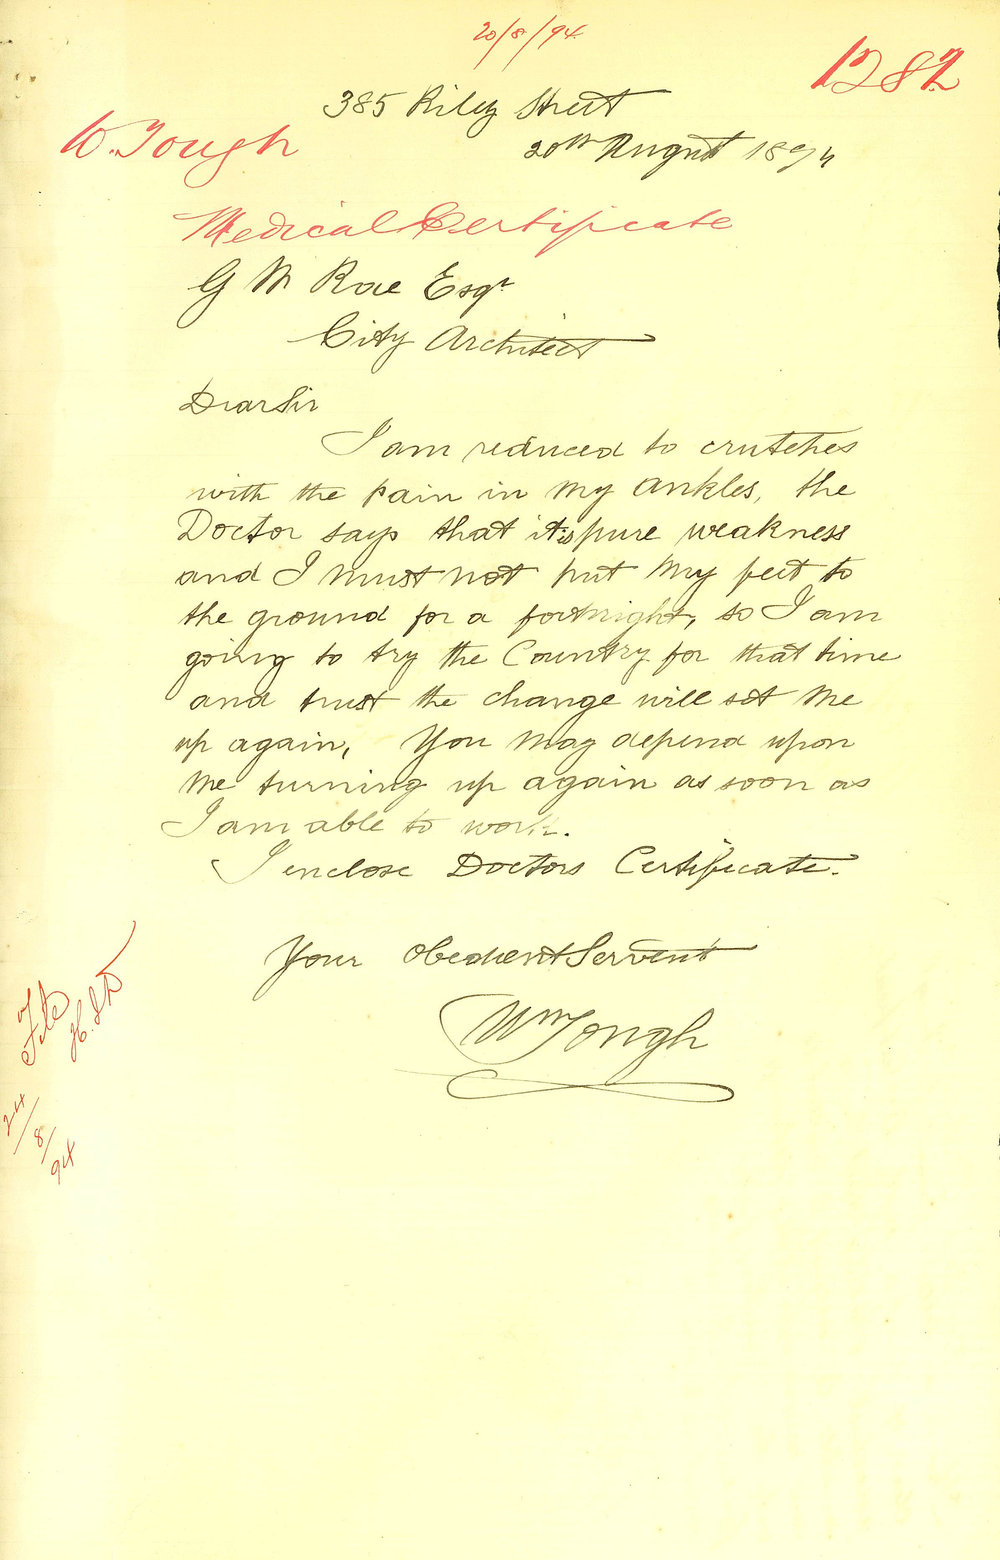 20/8/94
1282
385 Riley Street
W. Tough
20th August 1894
Medical Certificate
G M Rae Esqr
City Architect
Dear Sir
I am reduced to crutches
with the pain in my ankles, the
Doctor says that it is pure weakness
and I must not put my feet to
the ground for a fortnight, so I am
going to try the Country for that time
and trust the change will set me
up again, You may depend upon
me turning up again as soon as
I am able to work.
I enclose Doctors Certificate.
Your Obedient Servent
Wm Tough
File
24/8/94